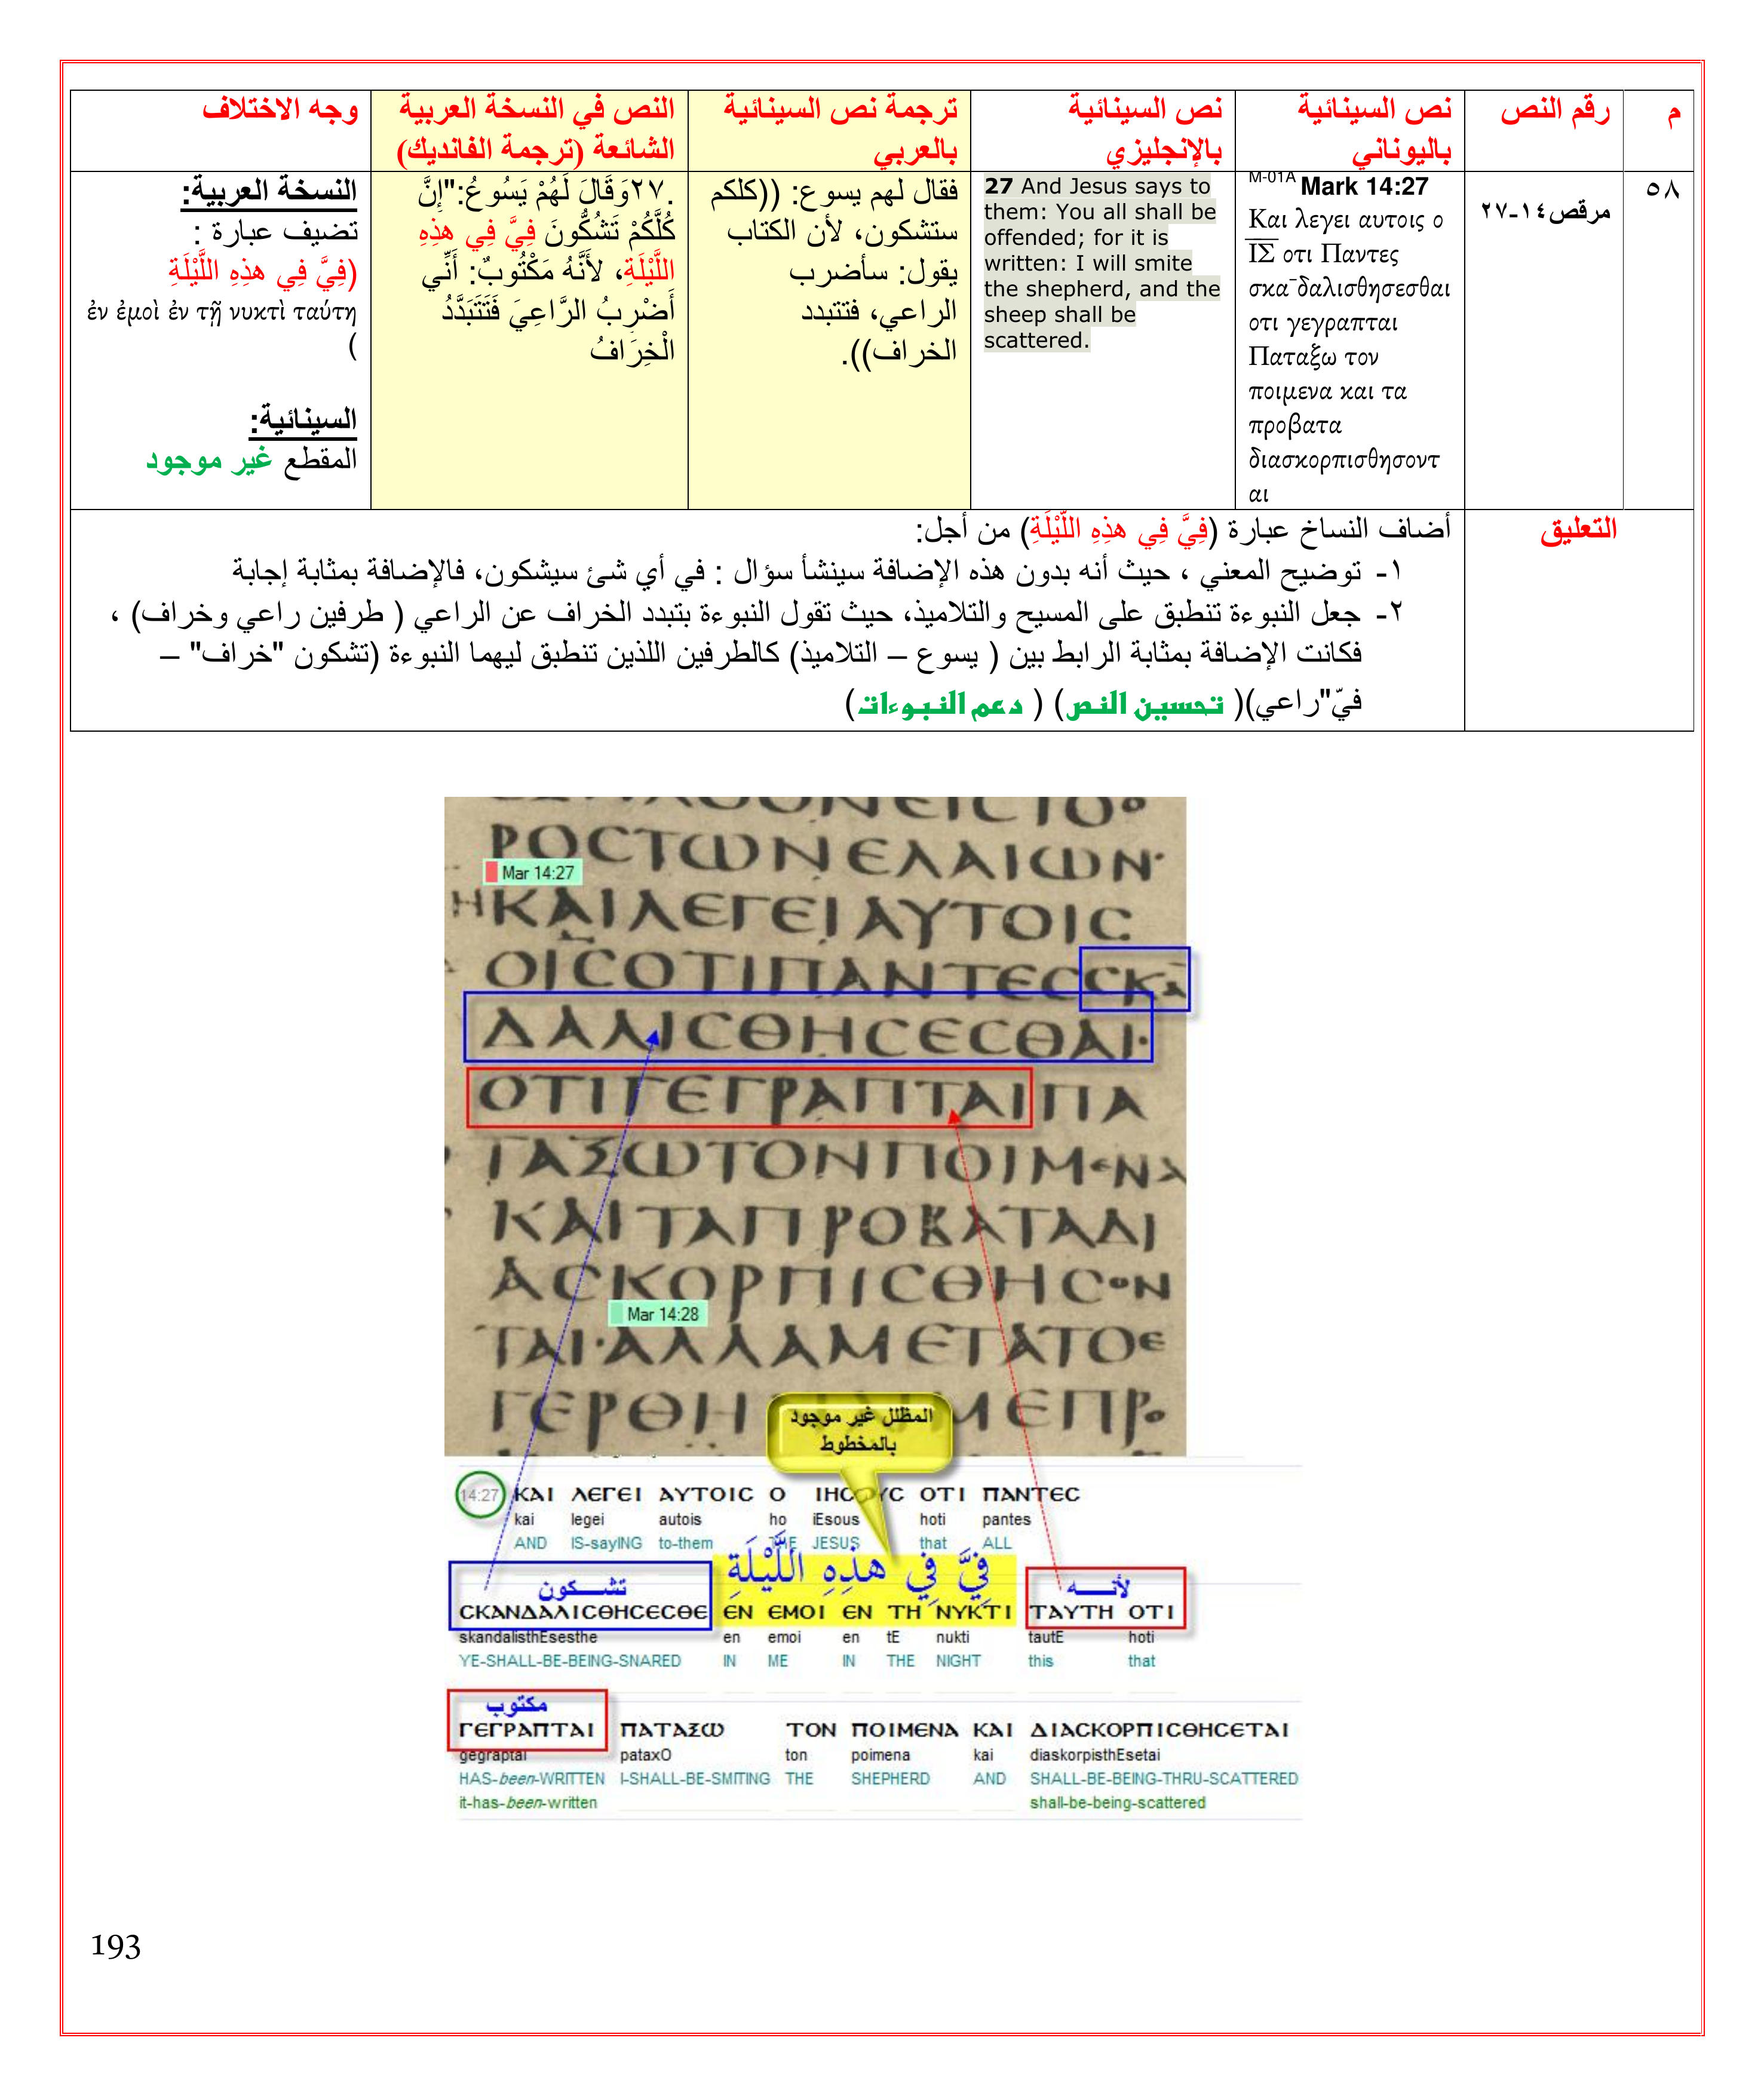 م
رقم النص
نص السينائية
باليوناني
نص السينائية
بالإنجليزي
ترجمة نص السينائية
بالعربي
النص في النسخة العربية
الشائعة (ترجمة الفانديك)
وجه الاختلاف
٥٨
مرقص١٤-٢٧
M-01A Mark 14:27
Και λεγει αυτοις ο
ΙΣ οτι Παντες
σκα¯δαλισθησεσθαι
οτι γεγραπται
Παταξω τον
ποιμενα και τα
προβατα
διασκορπισθησοντ
αι
27 And Jesus says to
them: You all shall be
offended; for it is
written: I will smite
the shepherd, and the
sheep shall be
scattered.
فقال لهم يسوع: ((كلكم
ستشكون، لأن الكتاب
يقول: سأضرب
الراعي، فتتبدد
الخراف)).
.٢٧وَقَالَ لَهُمْ يَسُوعُ:"إِنَّ
كُلَّكُمْ تَشُكُّونَ فِيَّ فِي هذِهِ
اللَّيْلَةِ، لأَنَّهُ مَكْتُوبٌ: أَنِّي
أَضْرِبُ الرَّاعِيَ فَتَتَبَدَّدُ
الْخِرَافُ
النسخة العربية:
تضيف عبارة :
(فِيَّ فِي هذِهِ اللَّيْلَةِ
ἐν ἐμοὶ ἐν τῇ νυκτὶ ταύτῃ
)
السينائية:
المقطع غير موجود
التعليق
أضاف النساخ عبارة (فِيَّ فِي هذِهِ اللَّيْلَةِ) من أجل:
١- توضيح المعني ، حيث أنه بدون هذه الإضافة سينشأ سؤال : في أي شئ سيشكون، فالإضافة بمثابة إجابة
٢- جعل النبوءة تنطبق على المسيح والتلاميذ، حيث تقول النبوءة بتبدد الخراف عن الراعي ( طرفين راعي وخراف) ،
فكانت الإضافة بمثابة الرابط بين ( يسوع – التلاميذ) كالطرفين اللذين تنطبق ليهما النبوءة (تشكون "خراف" –
فيّ"راعي)( تحسين النص) ( دعم النبوءات)
ΡΟCΤωΝΕΛΑΙωΝ·
Mar 14:27
ΗΚΑΙΛΕΓΕΙΑΥΤΟΙC
ΟΙCΟΤΙΠΑΝΤΕCCΚΑ
ΔΑΛΙCΘΗCΕCΘΑΙ·
ΟΤΙΓΕΓΡΑΠΤΑΙΠΑ
ΤΑΞωΤΟΝΠΟΙΜΕΝΑ
ΚΑΙΤΑΠΡΟΒΑΤΑΔΙ
ΑCΚΟΡΠΙCΘΗCΟΝ
Mar 14:28
ΤΑΙ·ΑΛΛΑΜΕΤΑΤΟΕ
ΓΕΡΘΗ ΜΕΠΡΟ
المظلل غير موجود
بالمخطوط
14:27 ΚΑΙ ΛΕΓΕΙ ΑΥΤΟΙC Ο ΙΗCΟΥC ΟΤΙ ΠΑΝΤΕC
kai legei autois ho iEsous hoti pantes
AND IS-sayING to-them THE JESUS that ALL
تشـــكون فِيَّ فِي هذِهِ اللَّيْلَةِ لأنـــه
CΚΑΝΔΑΛΙCΘΗCΕCΘΕ ΕΝ ΕΜΟΙ ΕΝ ΤΗ ΝΥΚΤΙ ΤΑΥΤΗ ΟΤΙ
skandalisthEsesthe en emoi en tE nukti tautE hoti
YE-SHALL-BE-BEING-SNARED IN ME IN THE NIGHT this that
مكتوب
ΓΕΓΡΑΠΤΑΙ ΠΑΤΑΞω ΤΟΝ ΠΟΙΜΕΝΑ ΚΑΙ ΔΙΑCΚΟΡΠΙCΘΗCΕΤΑΙ
gegraptai pataxO ton poimena kai diaskorpisthEsetai
HAS-been-WRITTEN I-SHALL-BE-SMITING THE SHEPHERD AND SHALL-BE-BEING-THRU-SCATTERED
it-has-been-written shall-be-being-scattered
193